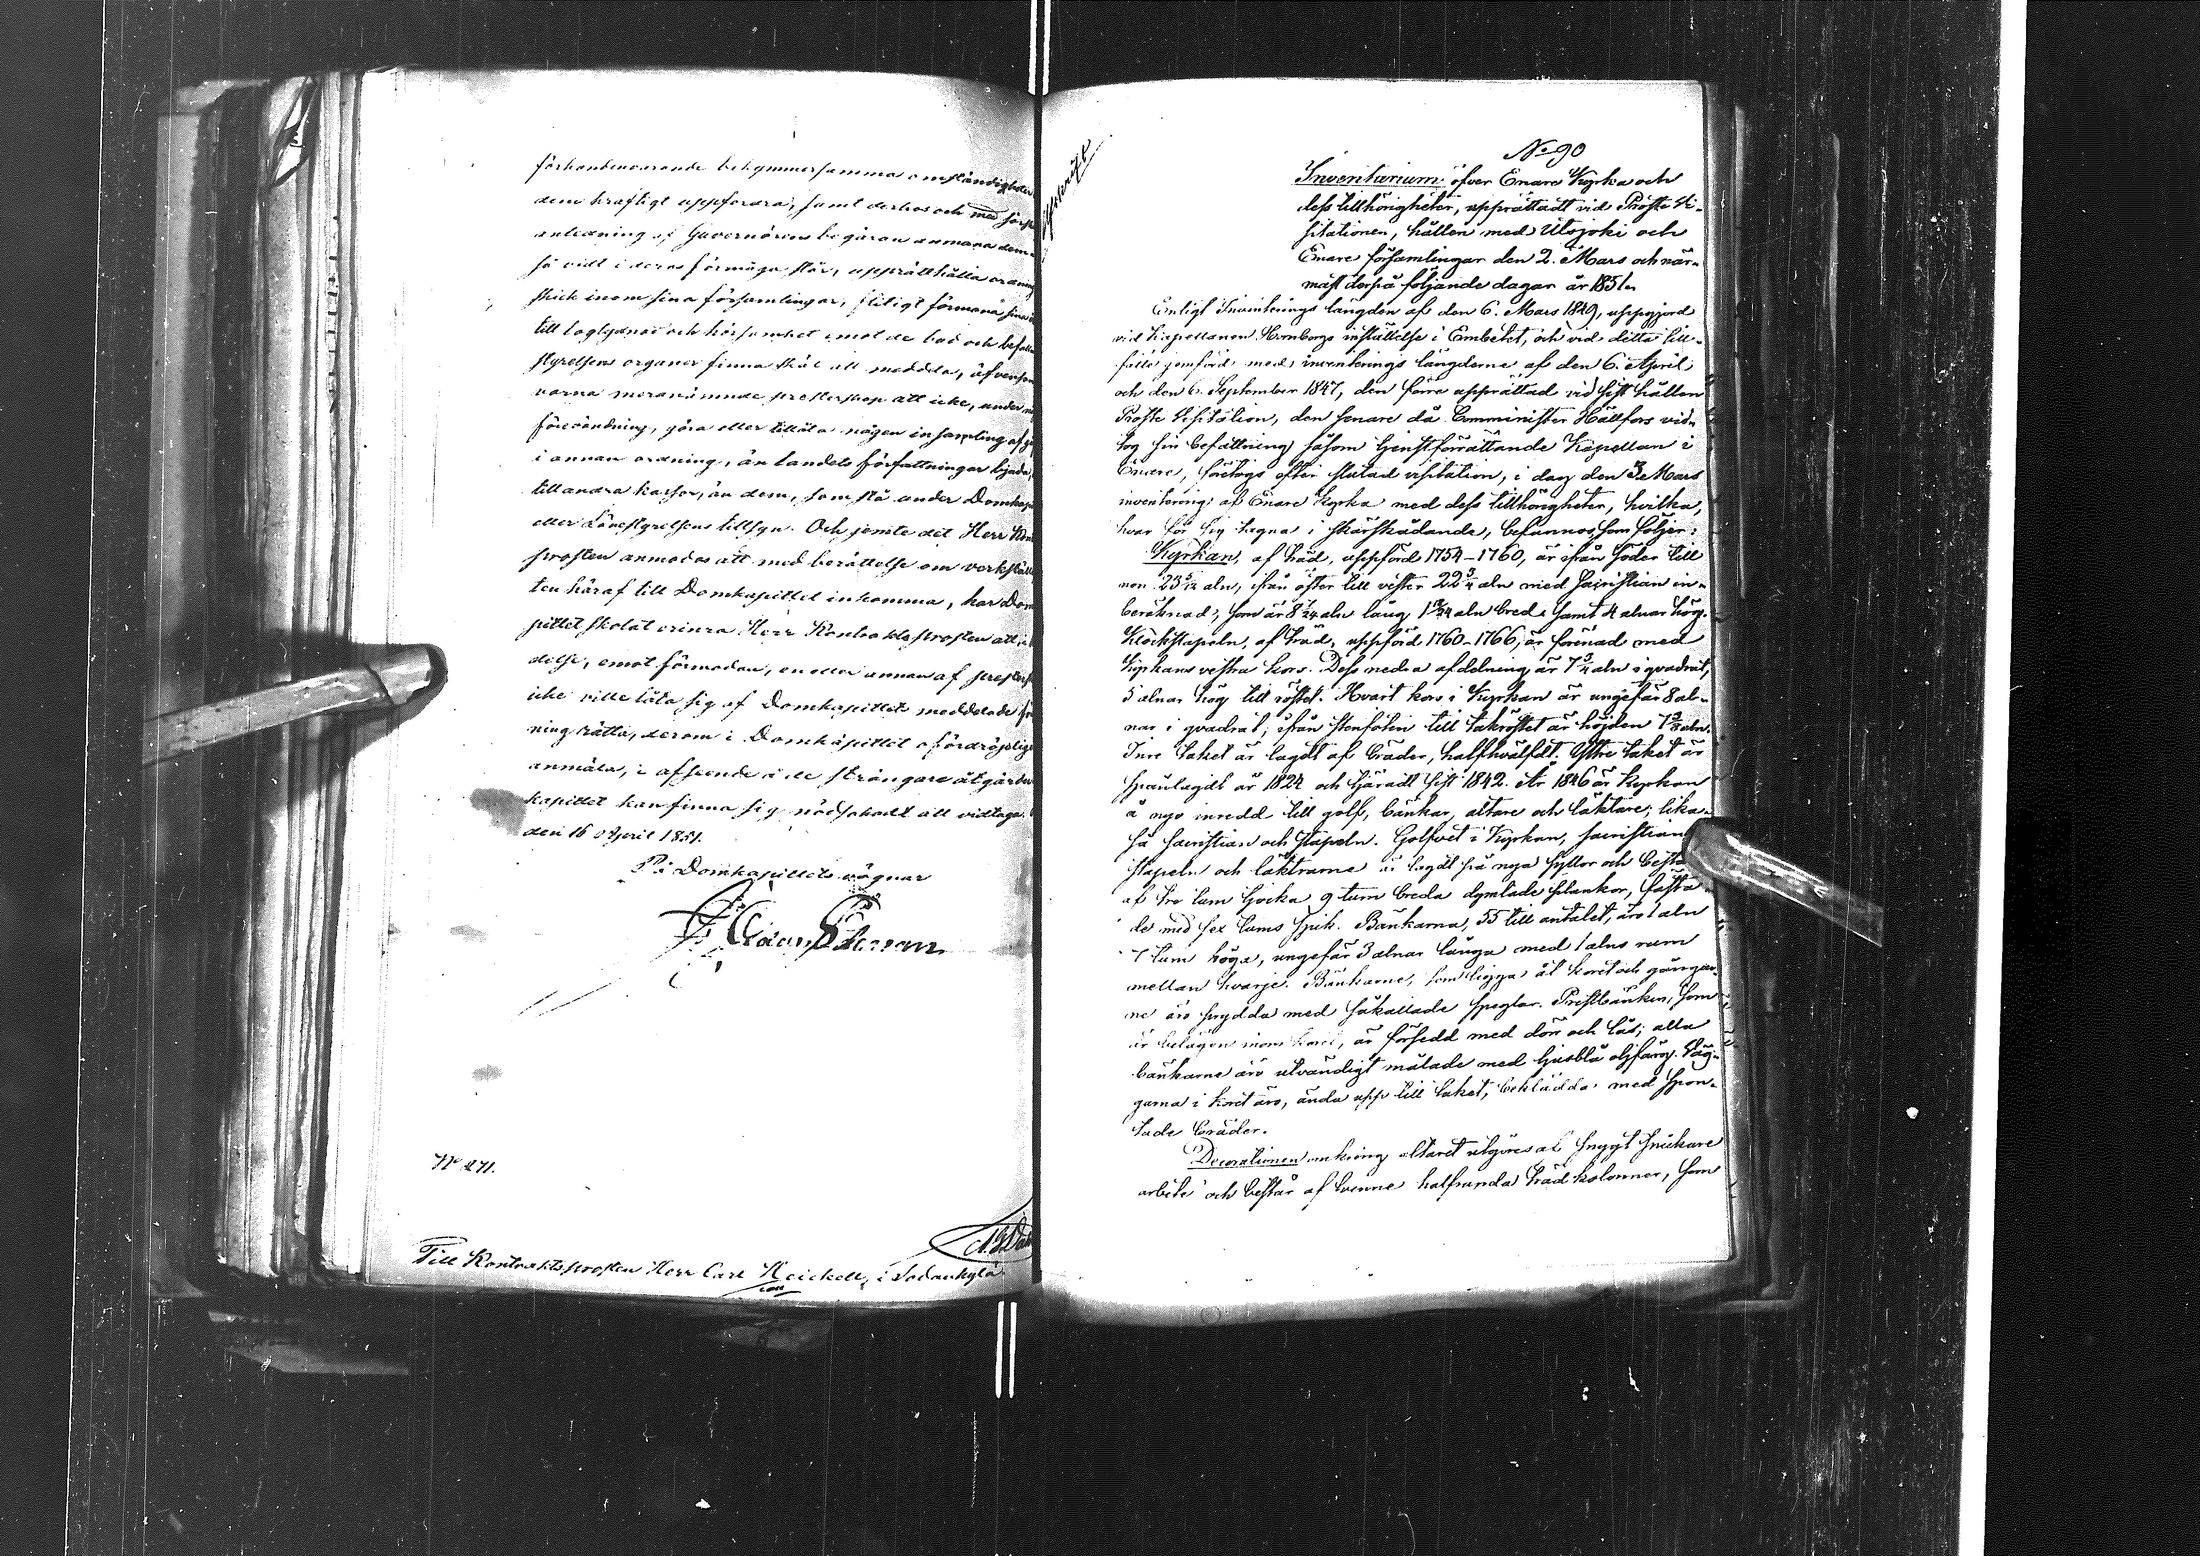 förhandenvarande bekymmersamma omständigheter
dem kraftigt uppfordra, samt derhos och med
anledning af Guvernörens begäran anmana dem
så vidt i deras förmåga står, upprätthålla ordning
skick inom sina församlingar, flitigt förmana sina
till laglydnad och hörsamhet emot de bud och
styrelsens organer finna skäl att meddela, äfvensom
varna meranämnde presterskap att icke, under
förevändning, göra eller tillåta någon insamling af
i annan ordning, än landets författningar bjuda,
till andra kassor, än dem, som stå under
eller Lånestyrelsens tillsyn. Och jemte det Herr
prosten anmodas att med berättelse om
ten häraf till Domkapitlet inkomma, har
pitlet skolat erinra Herr Kontraktsprosten att,
delse, emot förmodan, en eller annan af
icke ville låta sig af Domkapitlet meddelade
ning rätta, derom i Domkapitlet ofördröjligen
anmäla, i afseende å de strängare åtgärder
kapitlet kan finna sig nödsakadt att vidtaga.
den 16 April 1851.
På Domkapitlets vägnar
No 471.
Till Kontraktsprosten Herr Carl Heickell, i Sodankylä.
No 90
Inventarium öfver Enare Kyrka och
dess tillhörigheter, upprättadt vid Proste Vi-
sitationen, hållen med Utsjoki och
Enare församlingar den 2. Mars och när-
mast derpå följande dagar år 1851.
Enligt Inventerings längden af den 6. Mars 1849, uppgjord
vid Kapellanen Hornborgs inställelse i Embetet, och vid detta till-
fälle jemförd med inventerings längderne af den 6. April
och den 6. September 1847, den förre upprättad vid sist hållen
Proste Visitation, den senare då Comminister Hällfors vid-
tog sin befattning såsom tjenstförrättande Kapellan i
Enare, företogs efter slutad visitation, i dag den 3. Mars
inventering af Enare Kyrka med dess tillhörigheter, hvilka,
hvar för sig tagna i skärskådande, befunnos som följer:
Kyrkan, af träd, uppförd 1754–1760, är ifrån söder till
norr aln, ifrån öster till vester 22 3/4 aln med Sacristian in-
beräknad, som är aln lång aln bred samt 4 alnar hög.
Klockstapeln, af träd, uppförd 1760–1766, är förenad med
Kyrkans vestra kors. Dess nedra afdelning är aln i qvadrat,
5 alnar hög till röstet. Hvart kors i Kyrkan är ungefär 8 al-
nar i qvadrat; ifrån stenfoten till takröstet är höjden aln.
Inre taket är lagdt af bräder, halfhvälfdt. Yttre taket är
spånlagdt år 1824 och tjäradt sist 1842. År 1846 är Kyrkan
å nyo inredd till golf, bänkar, altare och läktare; lika-
så Sacristian och Stapeln. Golfvet i Kyrkan, sacristian
stapeln och läktrarne är lagdt på nya syllor och
af tre tum tjocka 9 tum breda dymlade plankor, fästa-
de med sex tums spik. Bänkarna, 55 till antalet, äro 1 aln
7 tum höga, ungefär 3 alnar långa med 1 alns rum
mellan hvarje. Bänkarne, som ligga åt koret och gångar-
ne äro prydda med såkallade speglar. Prestbänken, som
är belägen inom koret, är försedd med dörr och lås; alla
bänkarne äro utvändigt målade med ljusblå oljfärg. Väg-
garna i koret äro, ända upp till taket, beklädda med spon-
tade bräder.
Decorationen omkring altaret utgöres af snyggt snickare
arbete och består af tvenne halfrunda träd kolonner, som